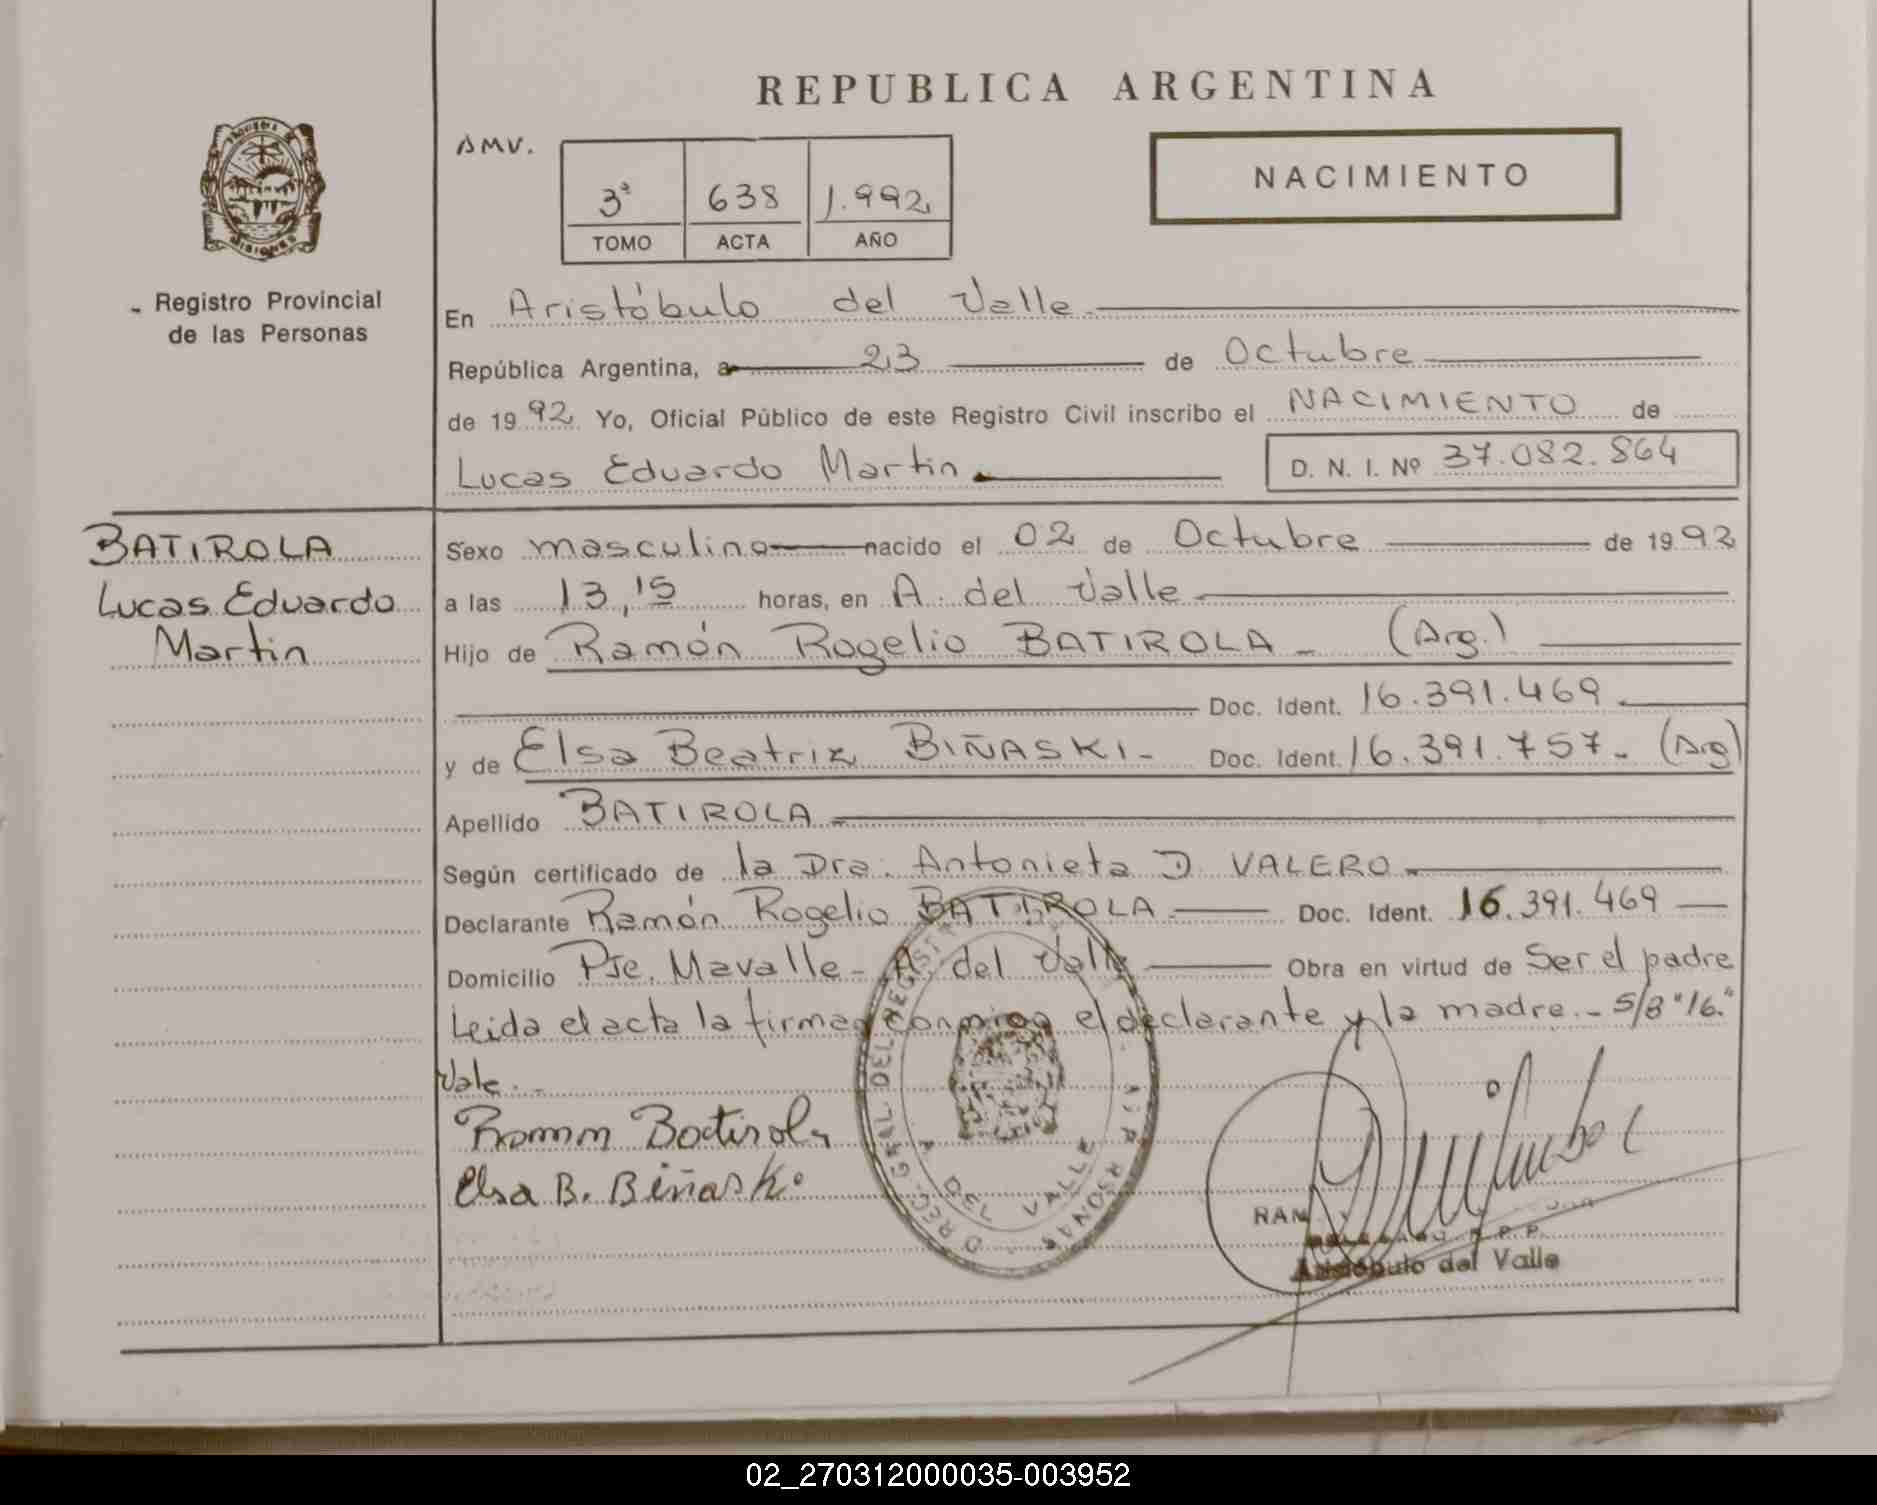 REPUBLICA ARGENTINA
AMV.
3ª 638 1.992
TOMO ACTA AÑO
NACIMIENTO
MISIONES
Registro Provincial
de las Personas
En Aristóbulo del Valle.
República Argentina, a 23 de Octubre
de 1992 Yo, Oficial Público de este Registro Civil inscribo el NACIMIENTO de
Lucas Eduardo Martin D. N. I. Nº 37.082.864
BATIROLA
Lucas Eduardo
Martin
Sexo masculino nacido el 02 de Octubre de 1992
a las 13,15 horas, en A. del Valle
Hijo de Ramón Rogelio BATIROLA - (Arg.)
Doc. Ident. 16.391.469
y de Elsa Beatriz BIÑASKI - Doc. Ident. 16.391.757 - (Arg)
Apellido BATIROLA
Según certificado de la Dra. Antonieta D. VALERO
Declarante Ramón Rogelio BATIROLA Doc. Ident. 16.391.469
Domicilio Pje. Mavalle - A. del Valle Obra en virtud de Ser el padre
Leida el acta la firman conmigo el declarante y la madre. - S/B "16."
Vale. -
Ramon Batirola
Elsa B. Biñaski
A. DEL VALLE
RAM
Aristóbulo del Valle
02_270312000035-003952